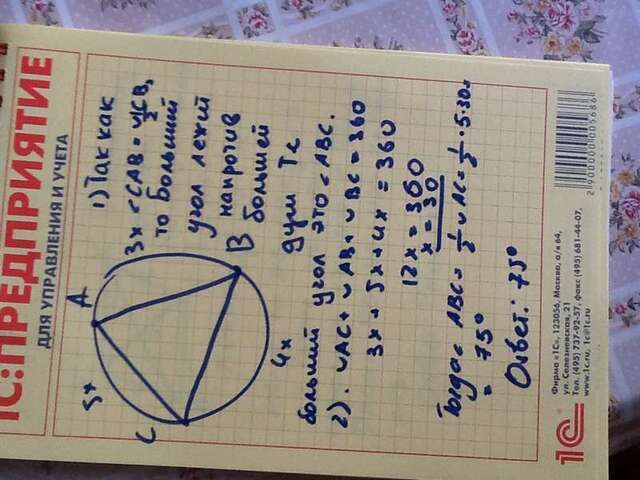 1С:ПРЕДПРИЯТИЕ
ДЛЯ УПРАВЛЕНИЯ И УЧЕТА
A
5x
C
3x
B
4x
1) Так как
<CAB = ◡CB/2,
то больший
угол лежит
напротив
большей
дуги те
больший угол это <ABC.
2). ◡AC + ◡AB + ◡BC = 360
3x + 5x + 4x = 360
12x = 360
x = 30
Тогда < ABC = 1/2 ◡AC = 1/2 · 5 · 30 =
= 75°
Ответ: 75°
1С
Фирма «1С», 123056, Москва, а/я 64,
ул. Селезневская, 21
Тел. (495) 737-92-57, факс (495) 681-44-07,
www.1c.ru, 1c@1c.ru
2900000005686